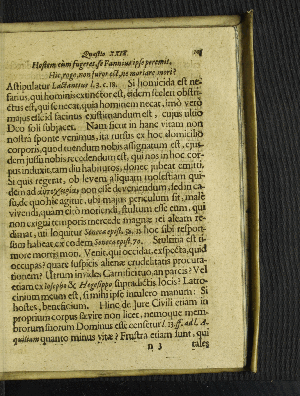 Quæstio XXIX.
Hostem cùm fugeret, se Fannius ipse peremit,
Hic, rogo, non furor est, ne moriare mori?
Astipulatur Lactantius l. 3. c. 18. Si homicida est ne-
farius, qui hominis extinctor est, eidem sceleri obstri-
ctus est, qui se necat, quia hominem necat, imò verò
majus esse id facinus existimandum est, cujus ultio
Deo soli subjacet. Nam sicut in hanc vitam non
nostra sponte venimus, ita rursus ex hoc domicilio
corporis, quod tuendum nobis assignatum est, ejus-
dem jussu nobis recedendum est, qui nos in hoc cor-
pus induxit, tam diu habituros, donec jubeat emitti.
At quis regerat, ob levem aliquam molestiam qui-
dem ad non esse deveniendum, sed in ca-
su, de quo hîc agitur, ubi majus periculum sit, malè
vivendi, quam citò moriendi, stultum esse eum, qui
non exigui temporis mercede magnæ rei aleam re-
dimat, uti loquitur Seneca epist. 70. is hoc sibi respon-
sum habeat, ex eodem Seneca epist. 70. Stultitia est ti-
more mortis mori. Venit, qui occidat, exspecta, quid
occupas? quare suscipis alienæ crudelitatis procura-
tionem? Utrum invides Carnifici tuo, an parcis? Vel
etiam ex Iosepho & Hegesippo supradictis locis? Latro-
cinium meum est, si mihi ipse intulero manum: Si
hostes, beneficium. Hinc de Jure Civili etiam in
proprium corpus sævire non licet, nemoque mem-
brorum suorum Dominus esse censetur l. 13. ff. ad l. A-
quiliam quanto minus vitæ? Frustra etiam sunt, qui
n 3
tales